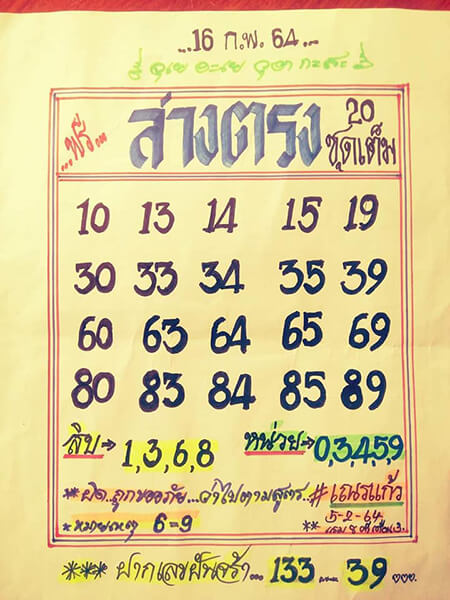 ...16 ก.พ. 64...
...ฟรี... ล่างตรง 20 ชุดเต็ม
10 13 14 15 19
30 33 34 35 39
60 63 64 65 69
80 83 84 85 89
สิบ→ 1,3,6,8 หน่วย→ 0,3,4,5,9
**ผิด..ถูกขออภัย...ว่าไปตามสูตร..#เณรแก้ว
*หมายเหตุ 6=9 ** 5-2-64
*** ฝากเลขฝันจร้า... 133....39...